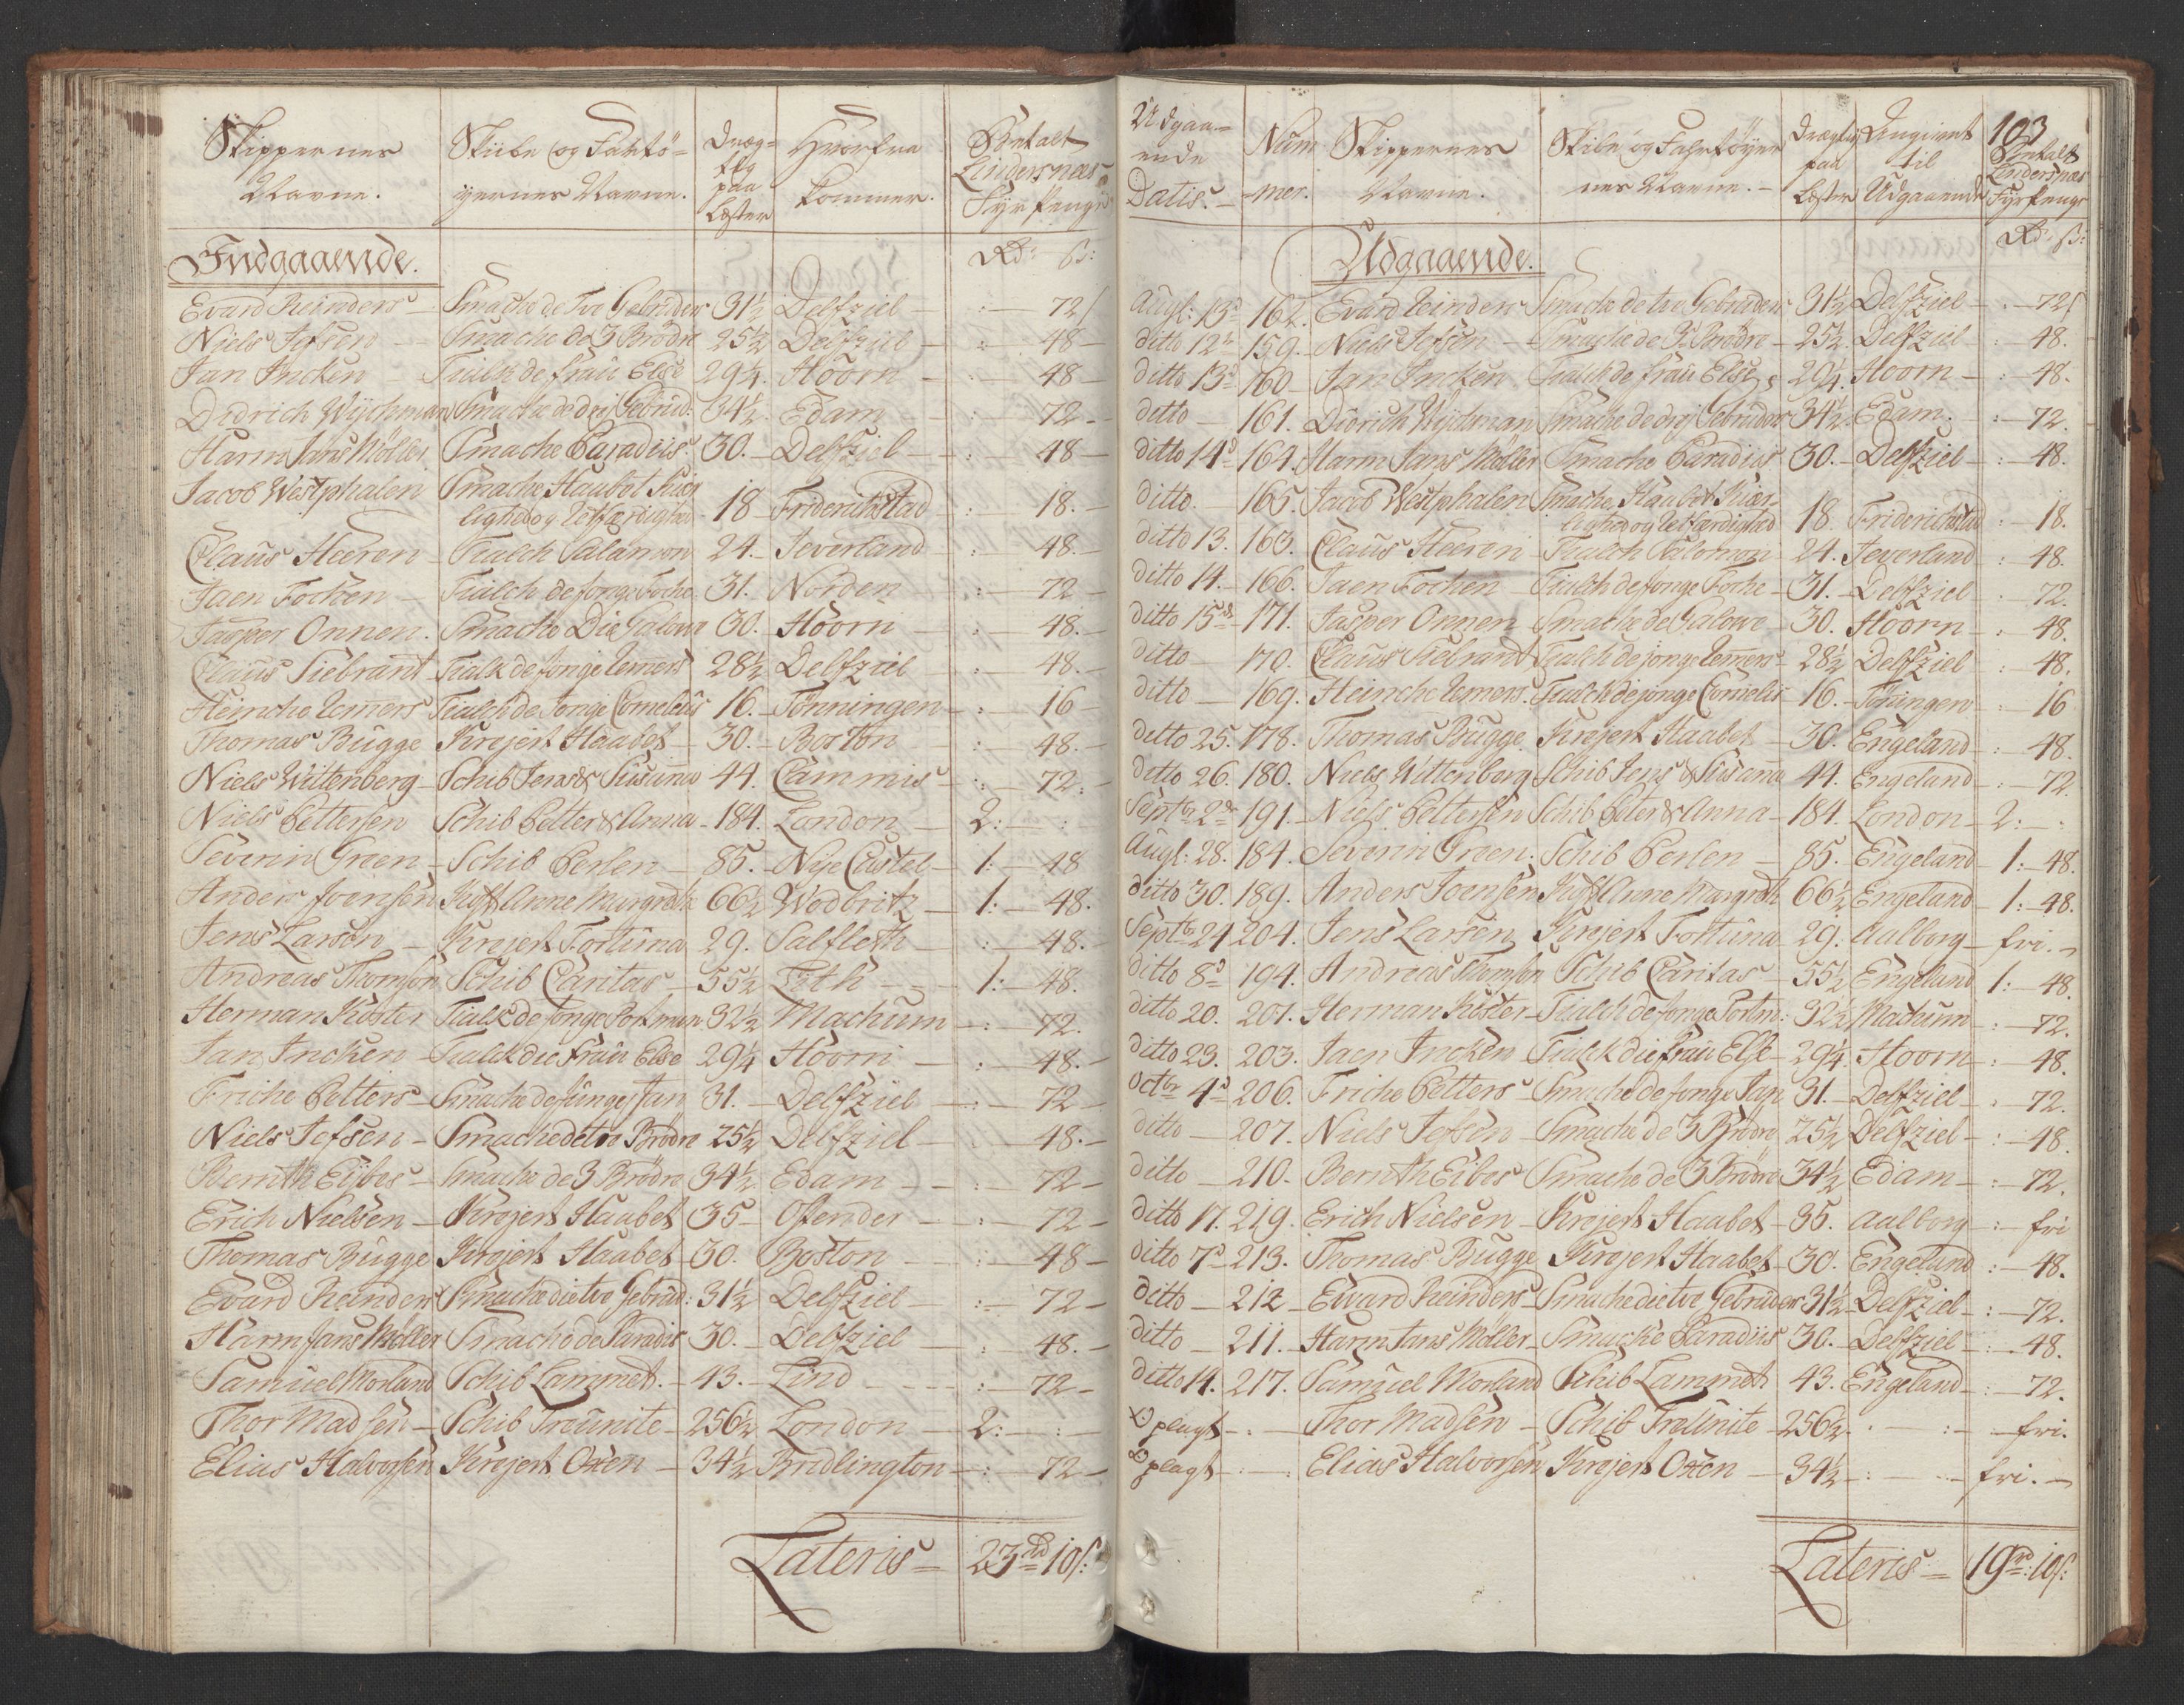 Skippernes Navne.
Skibe og Fahrtöyernes Navne.
Drægtig paa Læster
Hvorfra kommer.
Betalt Lindersnæs Fyr Penge
Rd: ß:
Indgaaende.
Evard Reinders — Smache de Tvo Gebrüders 31½ Delfziel — : — 72 ß
Niels Jefsen — Smache de 3 Brödre 25½ Delfziel — : 48 —
Jan Incken — Tialk de frau Else 29¼. Hoorn — : — 48 —
Didrich Wychman Smache de drej Gebrüd: 34½. Edam — : 72 —
Harm Jans Möller Smache Paradiis. 30. — Delfziel — : 48 —
Jacob Westphalen Smache Haabet Kiær
lighed og Retfærdighed 18 Friderichstad : 18. —
Claus Heeren — Tialch Salamon 24. — Jeverland — : 48. —
Jaen Focken — Tialch de Jonge Foche 31. Norden — : 72 —
Jasper Onnen. Smache Die Galowe 30. Hoorn — : 48. —
Claus Siebrant Tialk de Jonge Remers 28½ Delfziel — : 48. —
Heinche Remers Tialch de Jonge Cornelius 16. — Tönningen — : 16 —
Thomas Bugge Krejert Haabet — 30. — Boston — : 48. —
Niels Wittenberg — Schib Jens & Susanna 44. Cammis — : 72. —
Niels Pettersen Schib Petter & Anna — 184. London — 2: — :
Severin Green — Schib Perlen — 85. — Nÿe Castel — 1: — 48
Anders Joensen Kuff Anne Margreth 66½ Wodbritz — 1: — 48.
Jens Larsen — Krejert Fortuna 29. Salfleth — : — 48. —
Andreas Thomsen Schib Caritas — 55½ Lith — 1: — 48.
Herman Köster Tialk de Jonge Portman 32½ Machum — : 72.
Jan Incken — Tialk die Frau Else 29¼ Hoorn — : 48. —
Friche Petters — Smache de Junge Jan 31. — Delfziel — : — 72 —
Niels Jefsen — Smache de tre Brödre 25½ Delfziel — : 48. —
Bernth Eÿbes — Smache de 3 Brödre 34½ Edam — : 72 —
Erich Nielsen — Krejert Haabet 35 — Ostender — : 72 —
Thomas Bugge Krejert Haabet — 30. Boston — : 48 —
Evard Reinders Smache die tvo Gebrüd: 31½ Delfziel — : — 72 —
Harm Jans Möller Smache de Paradis 30. — Delfziel — : 48. —
Samuel Morland Schib Lammet. — 43. — Lind — : — 72 —
Thor Madsen — Schib Treunite — 256½ London — 2: — :
Elias Halvorsen Krejert Oxen — 34½ Bridlington — : 72 —
Lateris — 23 rd 10 ß:
103
Udgaaende Datis. —
Nummer.
Skippernes Navne.
Skibe og Fahrtöyernes Navne. —
Drægtig paa Læster
Angivet til Udgaaende
Betalt Lindersnæs Fyr Penge
Rd: ß:
Udgaaende.
Augt: 13de 162. Evard Reinders Smache de tvo Gebrüders 31½ Delfziel — : — 72 ß
ditto 12te 159. — Niels Jefsen — Smache de 3 Brödre — 25½. Delfziel : — 48.
ditto 13de 160 — Jan Incken. Tialch de frau Else 29¼. Hoorn — : — 48.
ditto — 161. Didrich Wychman Smache de drej Gebrüders 34½. Edam. : — 72.
ditto 14d 164. Harm Jans Möller Smache Paradiis 30. — Delfziel — : — 48.
ditto. 165. Jacob Westphalen Smache Haabet Kiær
lighed og Retfærdighed 18. Friderichstad : — 18.
ditto 13. 163. Claus Heeren — Tialch Salomon — 24. Jeverland : 48.
ditto 14. — 166. Jaen Fochen — Tialch de Jonge Foche — 31. — Delfziel — 72.
ditto 15de 171. Jasper Onnen Smache de Galowe — 30. Hoorn — : 48.
ditto — 170. Claus Siebrand Tialch de jonge Remers — 28½ Delfziel : 48.
ditto — 169. Heinche Remers. Tialch de jonge Cornelis 16. — Tönningen — : 16
ditto 25. 178. Thomas Bugge Krejert Haabet — 30. Engeland — : 48.
ditto 26. 180. Niels Wittenberg Schib Jens & Susanna 44. Engeland — : — 72.
Septbr 2de 191 — Niels Pettersen Schib Petter & Anna — 184. London — 2: — :
Augt: 28. 184. Severin Green. Schib Perlen — 85. Engeland — 1: — 48.
ditto 30. 189. Anders Joensen Kuff Anne Margreth 66½ Engeland — 1: — 48.
Septbr 21 204. Jens Larsen Krejert Fortuna — 29. Aalborg — fri. —
ditto 8d 194. Andreas Thomsen Schib Caritas — 55½ Engeland 1: — 48.
ditto 20. 201. Herman Köster — Tialch de Jonge Portm: 32½ Machum — : — 72.
ditto 23. 203. Jaen Incken Tialk die frau Else — 29¼. Hoorn — : 48.
Octbr 4d 206. Friche Petters — Smache de Jonge Jan 31. — Delfziel — 72.
ditto — 207. Niels Jefsen — Smache de 3 Brödre 25½ Delfziel — : — 48.
ditto — 210. — Bernth Eibes Smache de 3 Brödre 34½ Edam — : — 72.
ditto 17. 219. Erich Nielsen — Krejert Haabet — 35. Aalborg — : — fri
ditto 7d 213. Thomas Bugge Krejert Haabet — 30. Engeland : — 48.
ditto — 212 — Evard Reinders — Smache die tvo Gebrüders 31½ — Delfziel — : — 72.
ditto — 211. — Harm Jans Möller — Smacke Paradiis — 30. — Delfziel — : — 48.
ditto 14. 217. Samuel Morland Schib Lammeth 43. Engeland — : — 72.
Oplagt — : — Thor Madsen — Schib Treunite — 256½ — fri.
Oplagt — : Elias Halvorsen Krejert Oxen — 34½ — : — fri. —
Lateris — 19 rd: 10 ß: